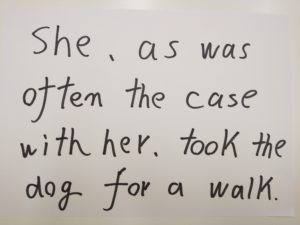 She, as was
often the case
with her, took the
dog for a walk.